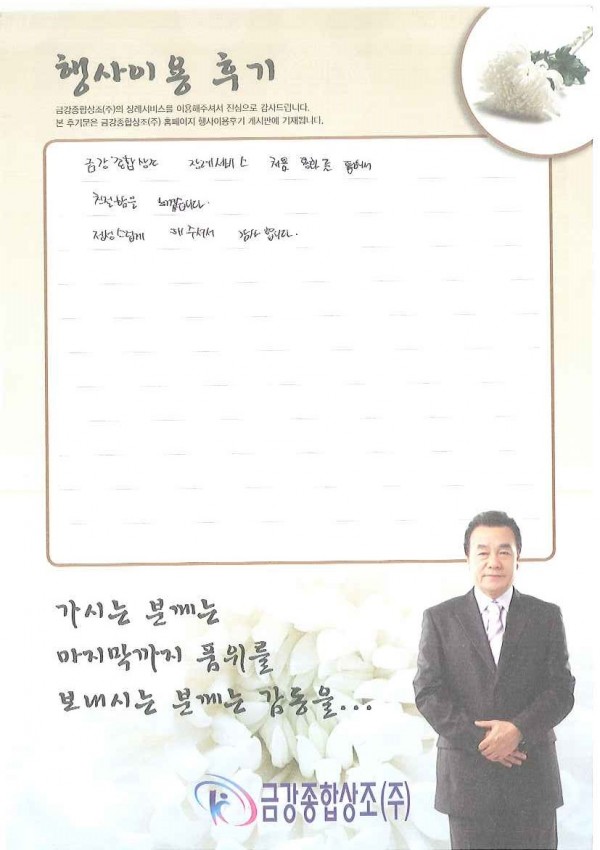 행사이용 후기
금강종합상조(주)의 장례서비스를 이용해주셔서 진심으로 감사드립니다.
본 후기문은 금강종합상조(주) 홈페이지 행사이용후기 게시판에 기재됩니다.
금강종합상조 장례서비스 처음
친절함을 느꼈습니다.
정성스럽게 해 주셔서 감사합니다.
가시는 분께는
마지막까지 품위를
보내시는 분께는 감동을...
금강종합상조(주)